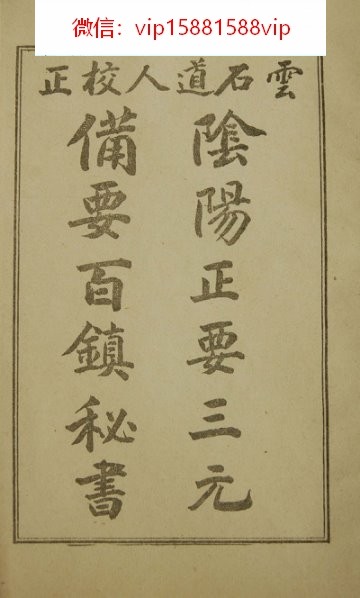 微信：vip15881588vip
雲石道人校正
陰陽正要三元
備要百鎮秘書